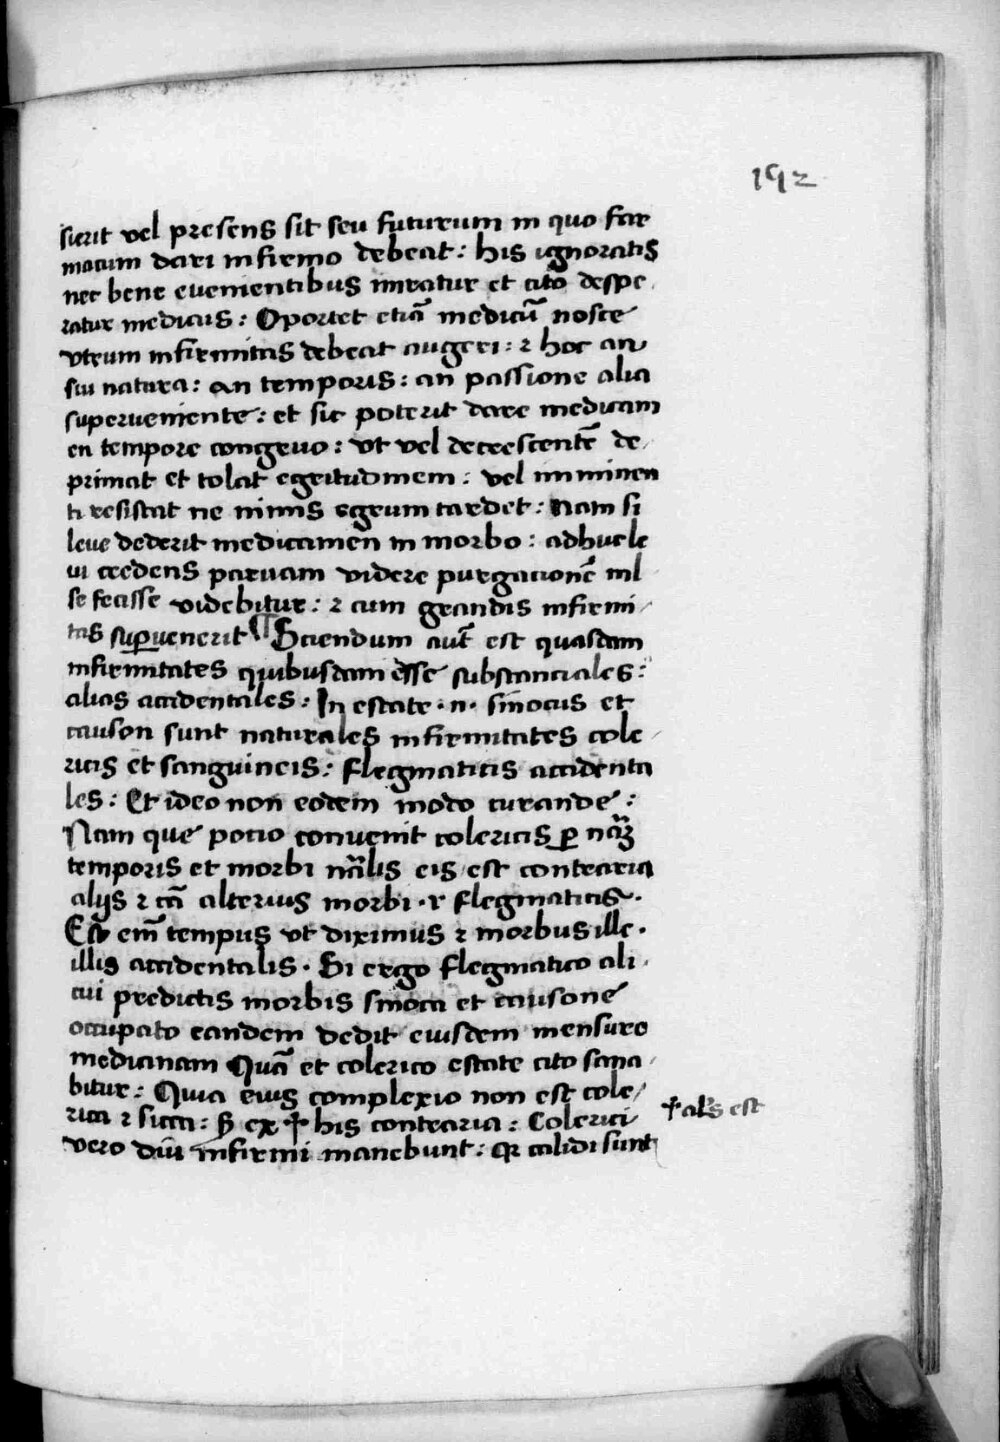 192
sierit vel presens sit seu futurum in quo far
macum dari infirmo debeat: his ignoratis
nec bene evenientibus miratur et cito despe
ratur medicus: Oportet etiā medicū nosce
utrum infirmitas debeat augeri: ⁊ hoc an
sui natura: an temporis: an passione alia
superveniente: et sic poterit dare medicam
en tempore congruo: ut vel decrescentē de-
primat et tolat egritudinem: vel imminen
ti resistat ne nimis egrum tardet: Nam si
leve dederit medicamen in morbo: adhuc le
vi credens parvam videre purgationē
se fecisse videbitur: ⁊ cum grandis infirmi-
tas suꝑvenerit ¶ Sciendum aut̄ est quasdam
infirmitates quibusdam ēsse substanciales:
alias accidentales: In estate .n. sinocus et
causon sunt naturales infirmitates cole-
ricis et sanguineis: flegmaticis accidenta
les: Et ideo non eodem modo curande:
Nam que potio convenit colericis ꝑ nāꝫ
temporis et morbi nāłis eis est contraria
alijs ⁊ cā alterius morbi . r flegmaticis.
em̄ tempus ut diximus ⁊ morbus ille.
illis accidentalis. Si ergo flegmatico ali-
cui predictis morbis sinoca et causone
occupato eandem dedit eiusdem mensure
medicinam Quā et colerico estate cito sana-
bitur: Quia eius complexio non est cole-
rica ⁊ sicca: Sꝫ ex ☨ his contraria: Colerici
☨ al̄s est
vero diū infirmi manebunt: qꝛ calidi sunt